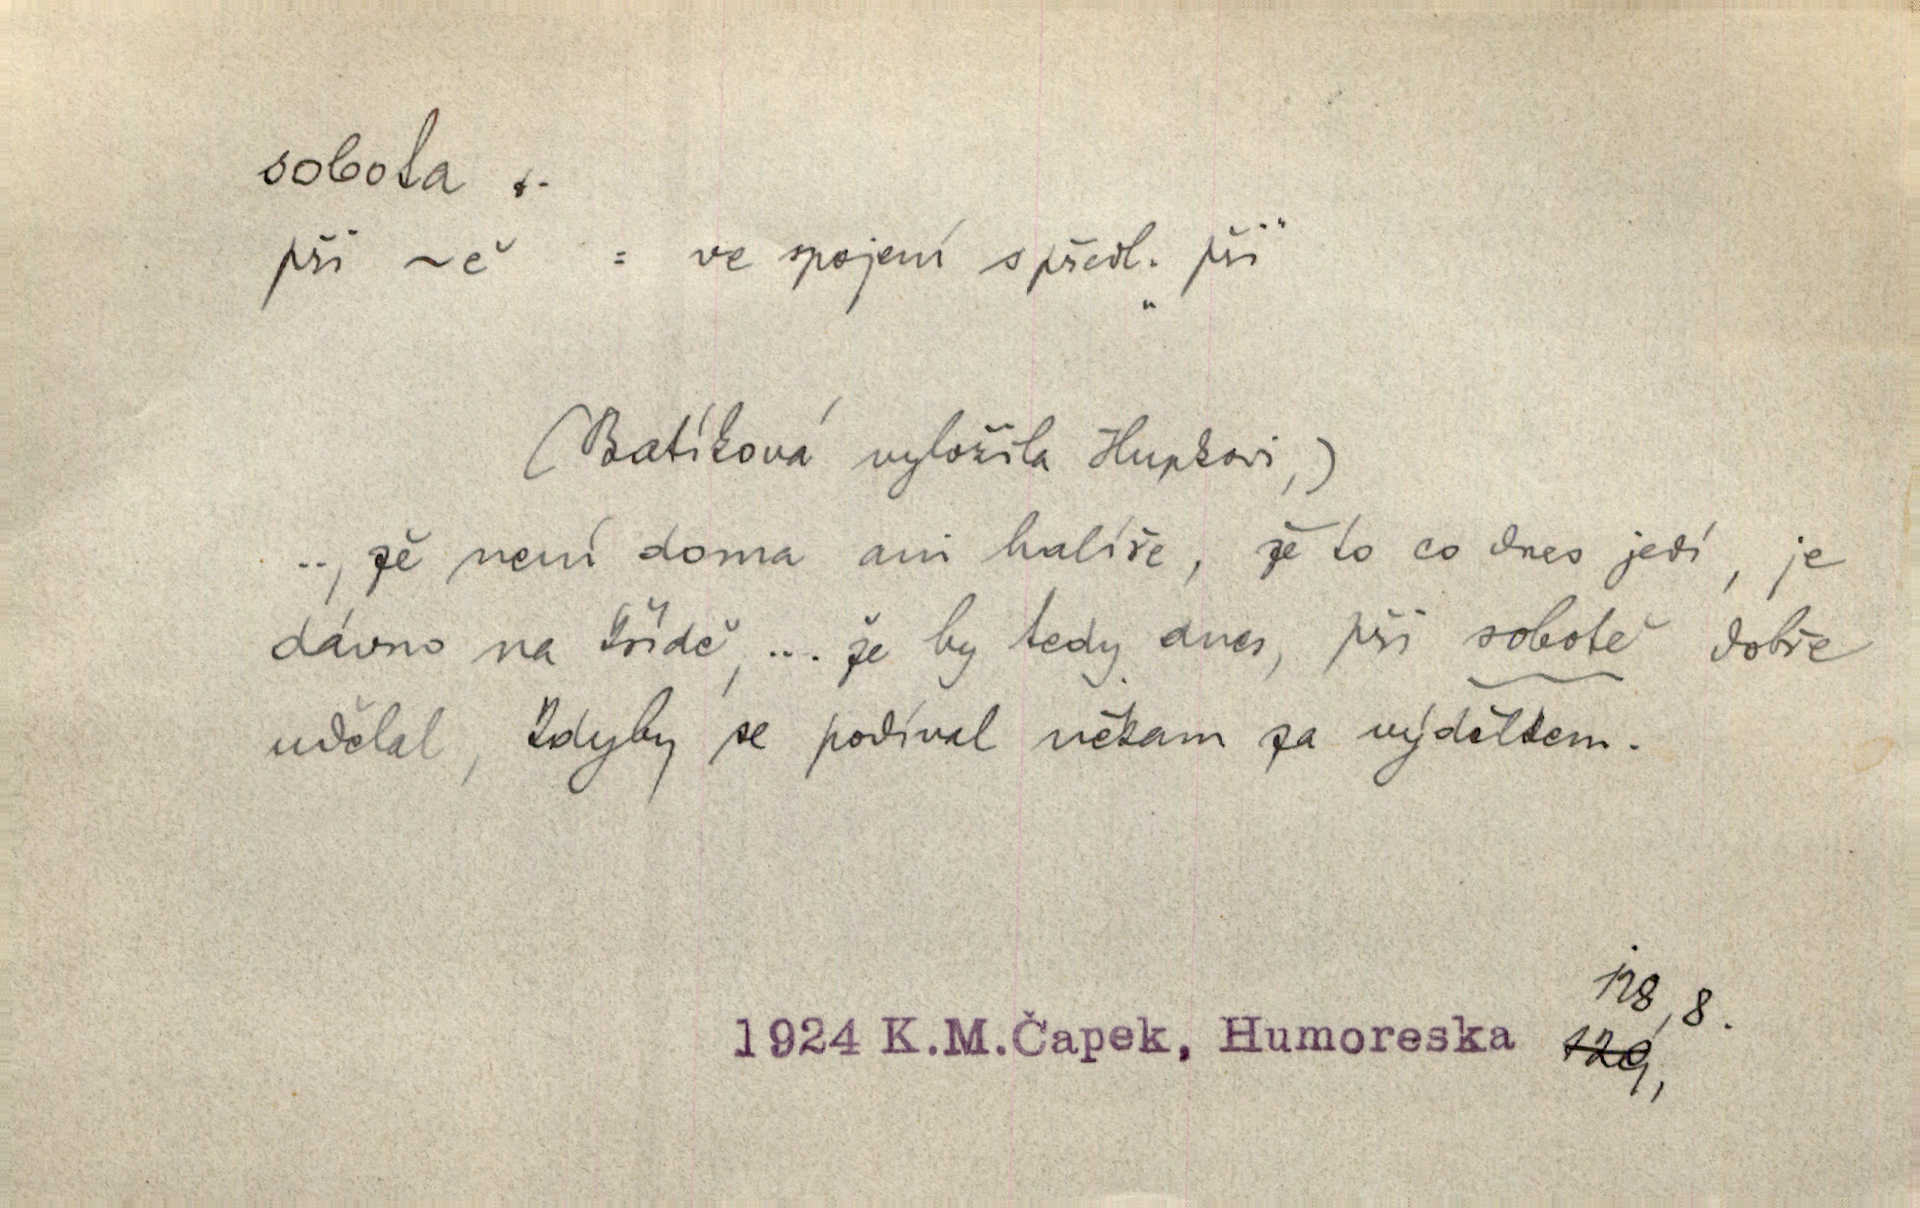 sobota f.
při ~ě = ve spojení s předl. „při"
(Batíková vyložila Hupkovi,)
.., že není doma ani halíře, že to co dnes jedí, je
dávno na křídě, ... že by tedy dnes, při sobotě dobře
udělal, kdyby se podíval někam za výdělkem.
128, 8.
1924 K.M.Čapek, Humoreska 129,